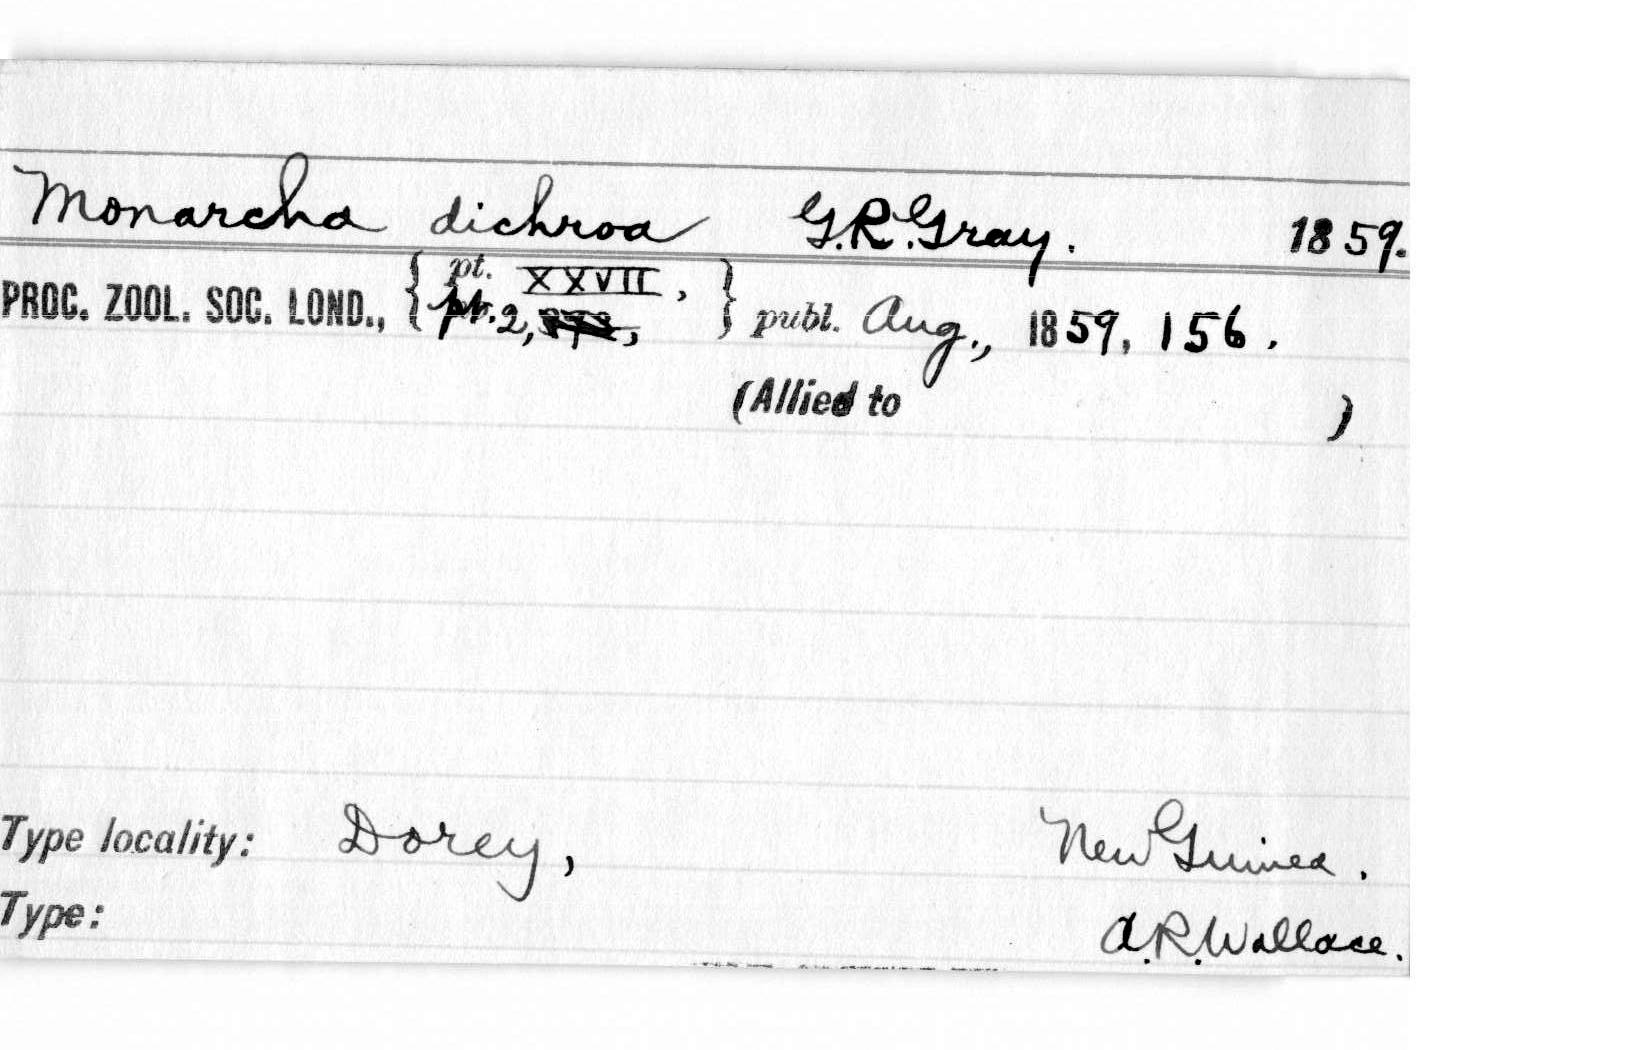 Monarcha dichroa G.R.Gray. 1859.
PROC. ZOOL. SOC. LOND., { pt. XXVII, pt. 2, } publ. Aug., 1859, 156.
(Allied to )
Type locality: Dorey, New Guinea.
Type: A.R.Wallace.